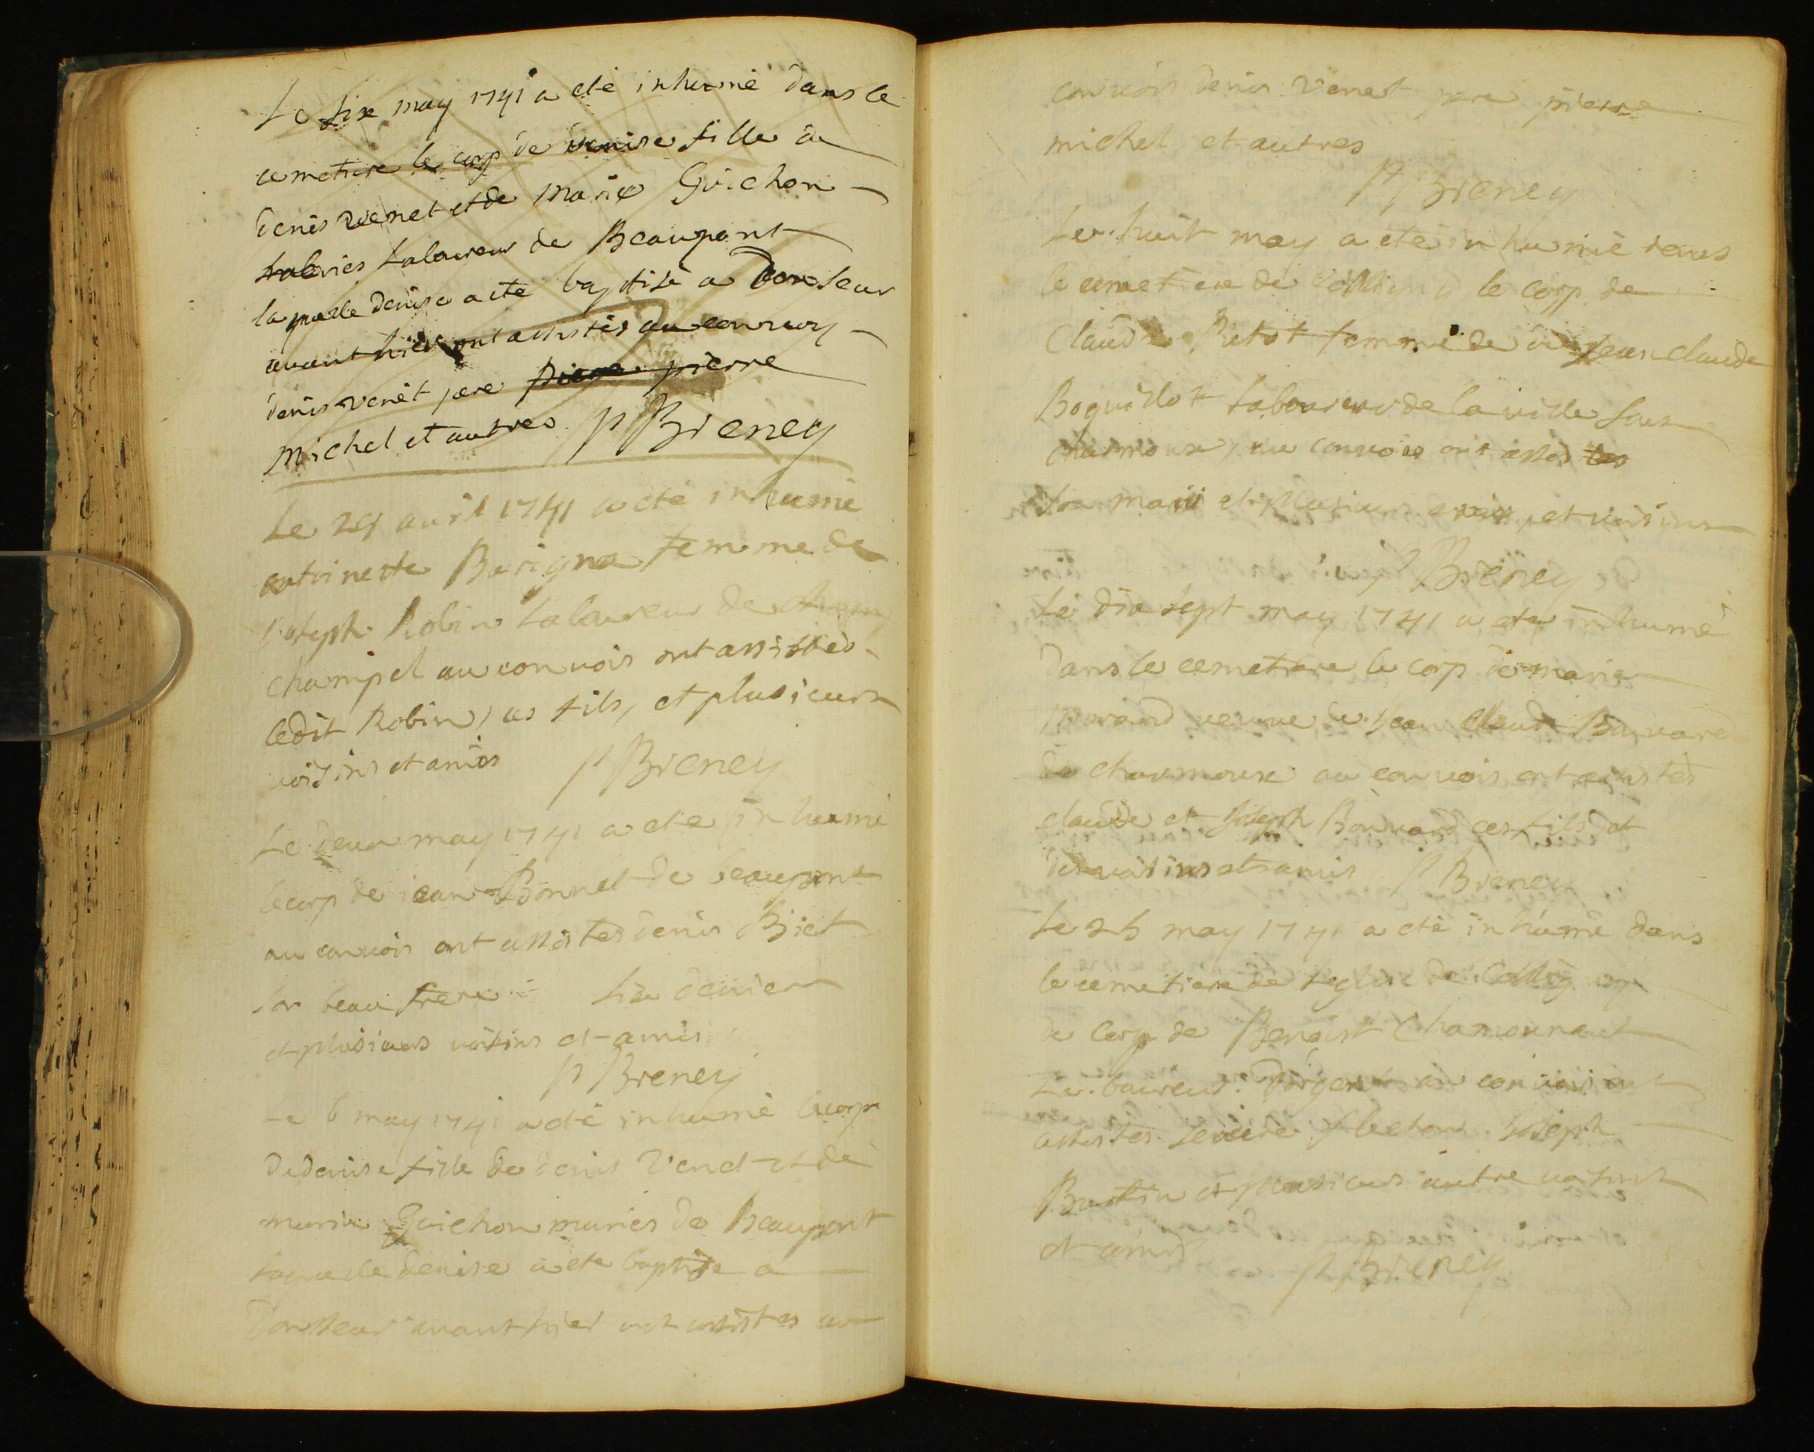 Le six may 1741 a eté inhumé dans le
cemetiere le corp de denise fille de
denis venet et de Marie Guichon
laboureur de Beaupont
la quelle denise a eté baptisé a Donseur
avant hier ont assistés au convoy
denis venet pere pierre pierre
michel et autres P Breney
Le 29 avril 1741 a eté inhumé
antoinette Barigna femme de
joseph Robin laboureur de
champel au convois ont assistés
ledit Robin, ces fils, et plusieurs
voisins et amis P Breney
Le deux may 1741 a eté inhumé
le corp de jean Bonnet de beaupont
au convois ont assistes denis Biet
son beau frere
et plusieurs voisins et amis
P Breney
Le 6 may 1741 a eté inhumé le corp
de denise fille de denis Venet et de
marie Guichon mariés de Beaupont
laquelle denise a eté baptisé a
Donseur avant hier ont assistes au
convois denis Venet pere pierre
michel et autres
P Breney
Le huit may a eté inhumé dans
le cemetiere de le corp de
Clauda femme de jean claude
Boquillot laboureur de la ville sous
charmoux, au convois ont assistes
son mari et plusieurs et voisins
P Breney
Le dix sept may 1741 a eté inhumé
dans le cemetiere le corp de marie
Morand veuve de jean claude Bonvard
de charmoux au convois ont assistés
claude et joseph Bonvard ces fils et
des voisins et amis P Breney
Le 25 may 1741 a eté inhumé dans
le cemetiere de l'eglise de
le corp de Benoist
laboureur au convois ont
assistes joseph
et plusieurs autre voisins
et amis
P Breney